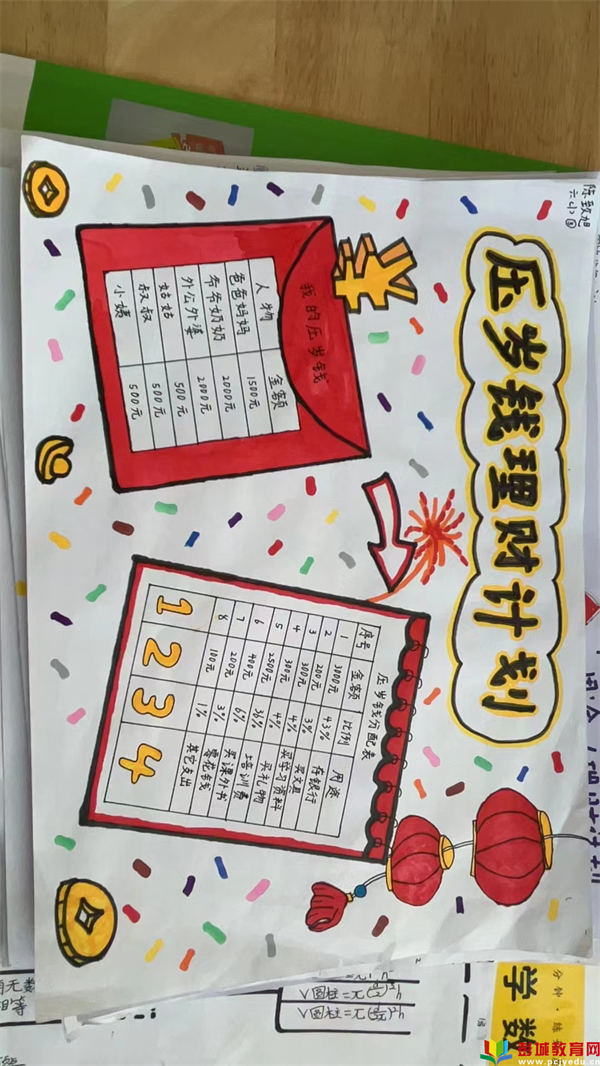 压岁钱理财计划
陈致旭
我的压岁钱
人物 金额
爸爸妈妈 1500元
爷爷奶奶 2000元
外公外婆 2000元
姑姑 500元
叔叔 500元
小姨 500元
压岁钱分配表
序号 金额 比例 用途
1 3000元 43% 存银行
2 200元 3% 买文具
3 300元 4% 买学习资料
4 300元 4% 买礼物
5 2500元 36% 培训费
6 400元 6% 买课外书
7 200元 3% 零花钱
8 100元 1% 其它支出
1 2 3 4
有无数
相等
分钟
数学
彭城教育网
www.pcjyedu.cn